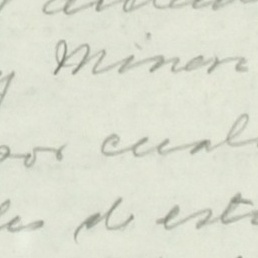 y Minor
por cual
les de esta